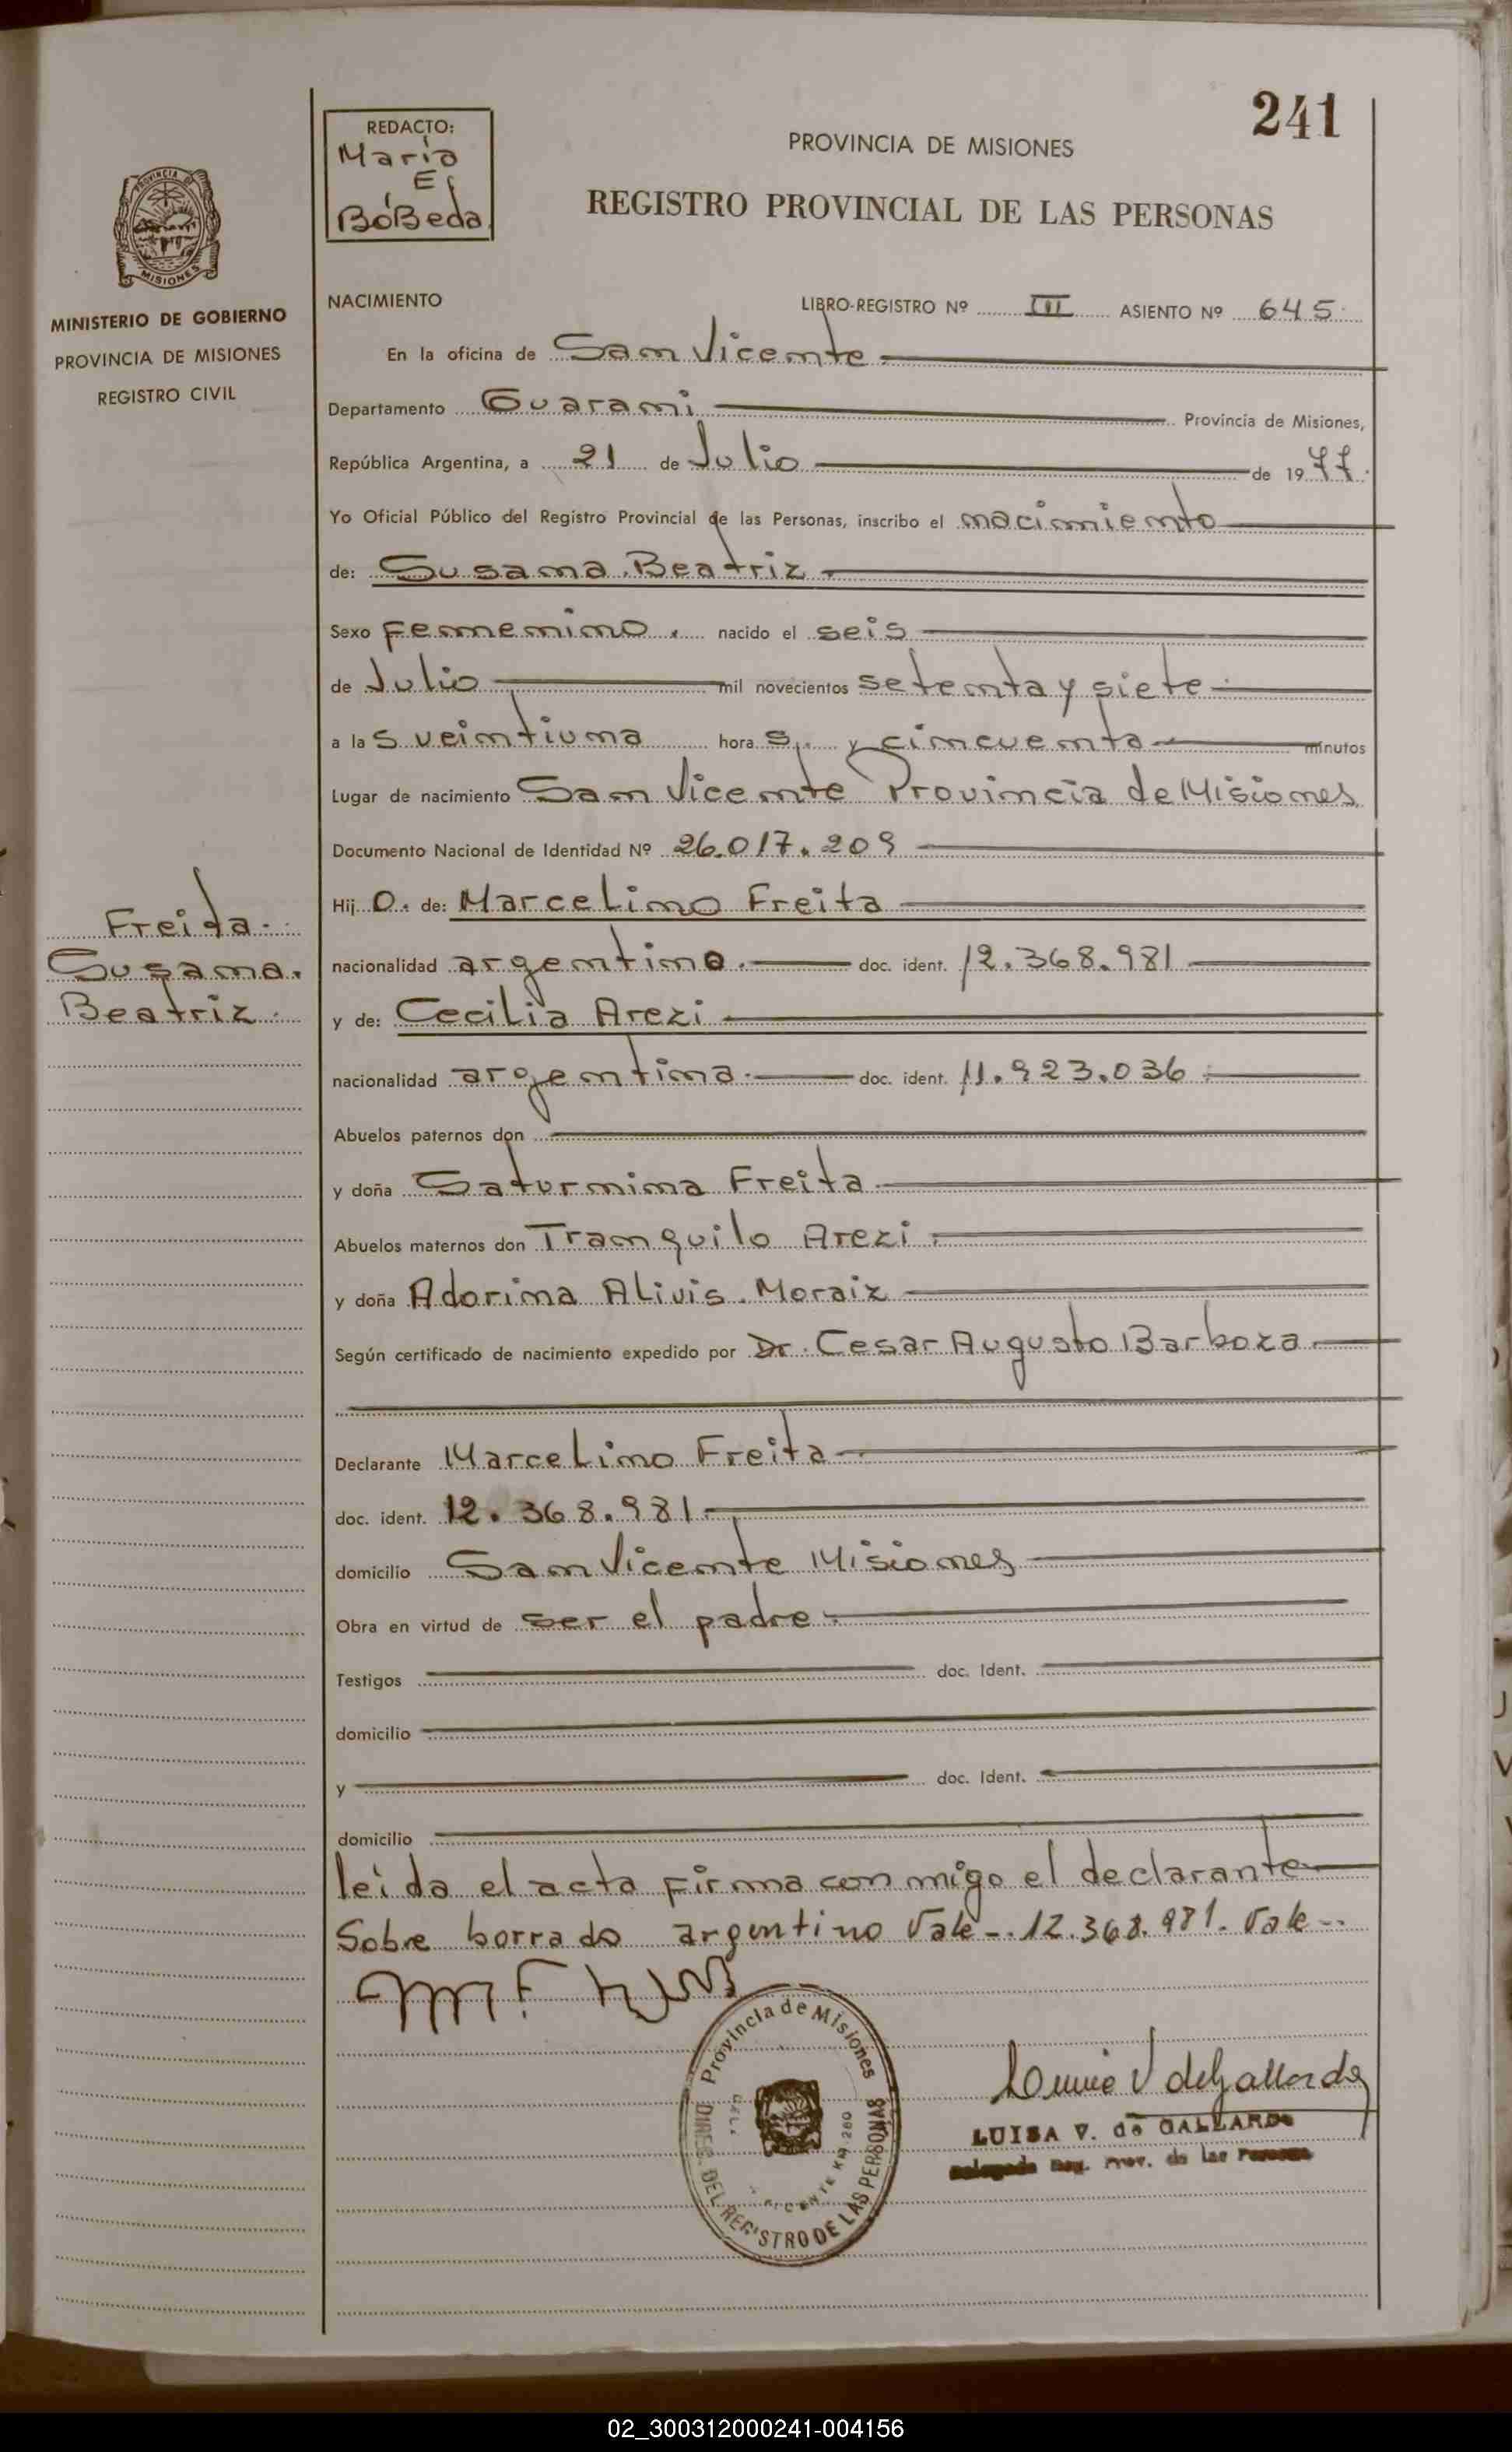 241
REDACTO:
María
E
BóBeda
PROVINCIA DE MISIONES
REGISTRO PROVINCIAL DE LAS PERSONAS
PROVINCIA DE
MISIONES
MINISTERIO DE GOBIERNO
PROVINCIA DE MISIONES
REGISTRO CIVIL
NACIMIENTO LIBRO-REGISTRO Nº III ASIENTO Nº 645
En la oficina de San Vicente
Departamento Guarani Provincia de Misiones,
República Argentina, a 21 de Julio de 1977
Yo Oficial Público del Registro Provincial de las Personas, inscribo el nacimiento
de: Susana Beatriz
Sexo femenino nacido el seis
de Julio mil novecientos setenta y siete
a las veintiuna hora s y cincuenta minutos
Lugar de nacimiento San Vicente Provincia de Misiones
Documento Nacional de Identidad Nº 26.017.209
Hij o de: Marcelino Freita
nacionalidad argentino doc. ident. 12.368.981
y de: Cecilia Arezi
nacionalidad argentina doc. ident. 11.923.036
Abuelos paternos don
y doña Saturnina Freita
Abuelos maternos don Tranquilo Arezi
y doña Adorina Alivis Moraiz
Según certificado de nacimiento expedido por Dr. Cesar Augusto Barboza
Declarante Marcelino Freita
doc. ident. 12.368.981
domicilio San Vicente Misiones
Obra en virtud de ser el padre
Testigos doc. Ident.
domicilio
y doc. Ident.
domicilio
leida el acta firma con migo el declarante
Sobre borrado argentino Vale-. 12.368.981. Vale-.
Freida
Susana
Beatriz
Provincia de Misiones
DIREC. DEL REGISTRO DE LAS PERSONAS
LUISA V. de GALLARDO
Reg. Prov. de las Personas
02_300312000241-004156